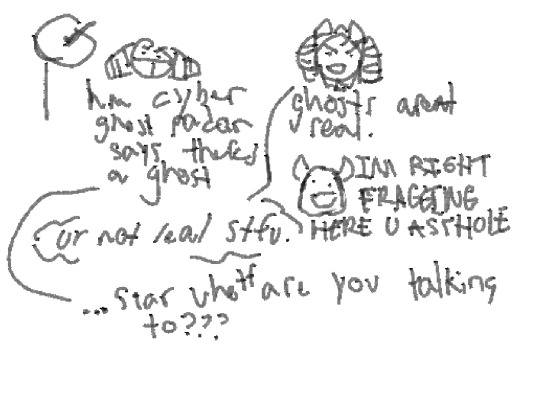 hm cyber
ghost radar
says theres
a ghost
ghosts arent
real.
IM RIGHT
FRAGGING
HERE U ASSHOLE
ur not real stfu.
...star who tf are you talking
to???